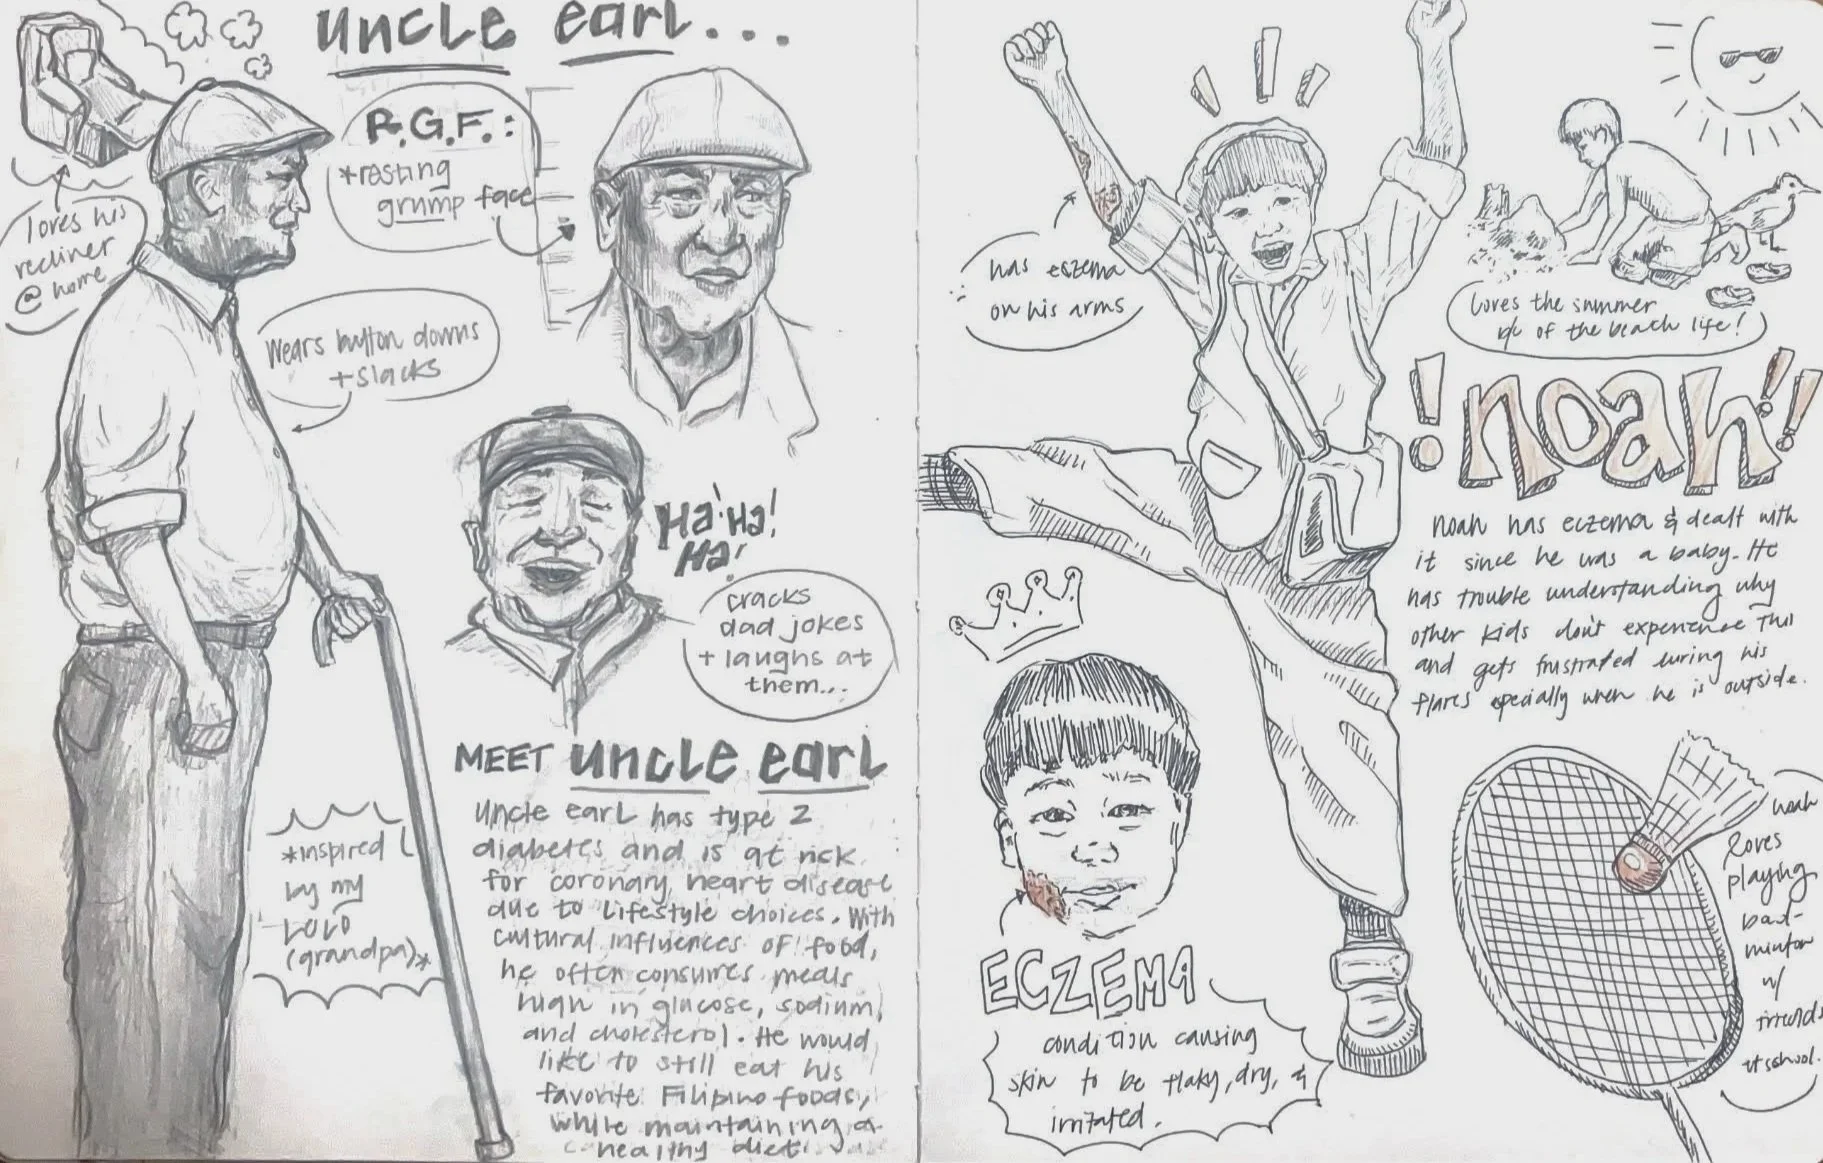 uncle earl...
R.G.F.:
*resting
grump face
loves his
recliner
@ home
Wears button downs
+ slacks
Ha! Ha!
Ha!
cracks
dad jokes
+ laughs at
them...
MEET uncle earl
uncle earl has type 2
diabetes and is at risk
for coronary heart disease
due to lifestyle choices. With
cultural influences of food,
he often consumes meals
high in glucose, sodium,
and cholesterol. He would
like to still eat his
favorite Filipino foods,
while maintaining a
healthy diet.
*inspired
by my
LOLO
(grandpa)*
has eczema
on his arms
loves the summer
b/c of the beach life!
!noah!!
noah has eczema & dealt with
it since he was a baby. He
has trouble understanding why
other kids don't experience this
and gets frustrated during his
flares especially when he is outside.
ECZEMA
condition causing
skin to be flaky, dry, &
irritated.
noah
loves
playing
bad-
minton
w/
friends
at school.